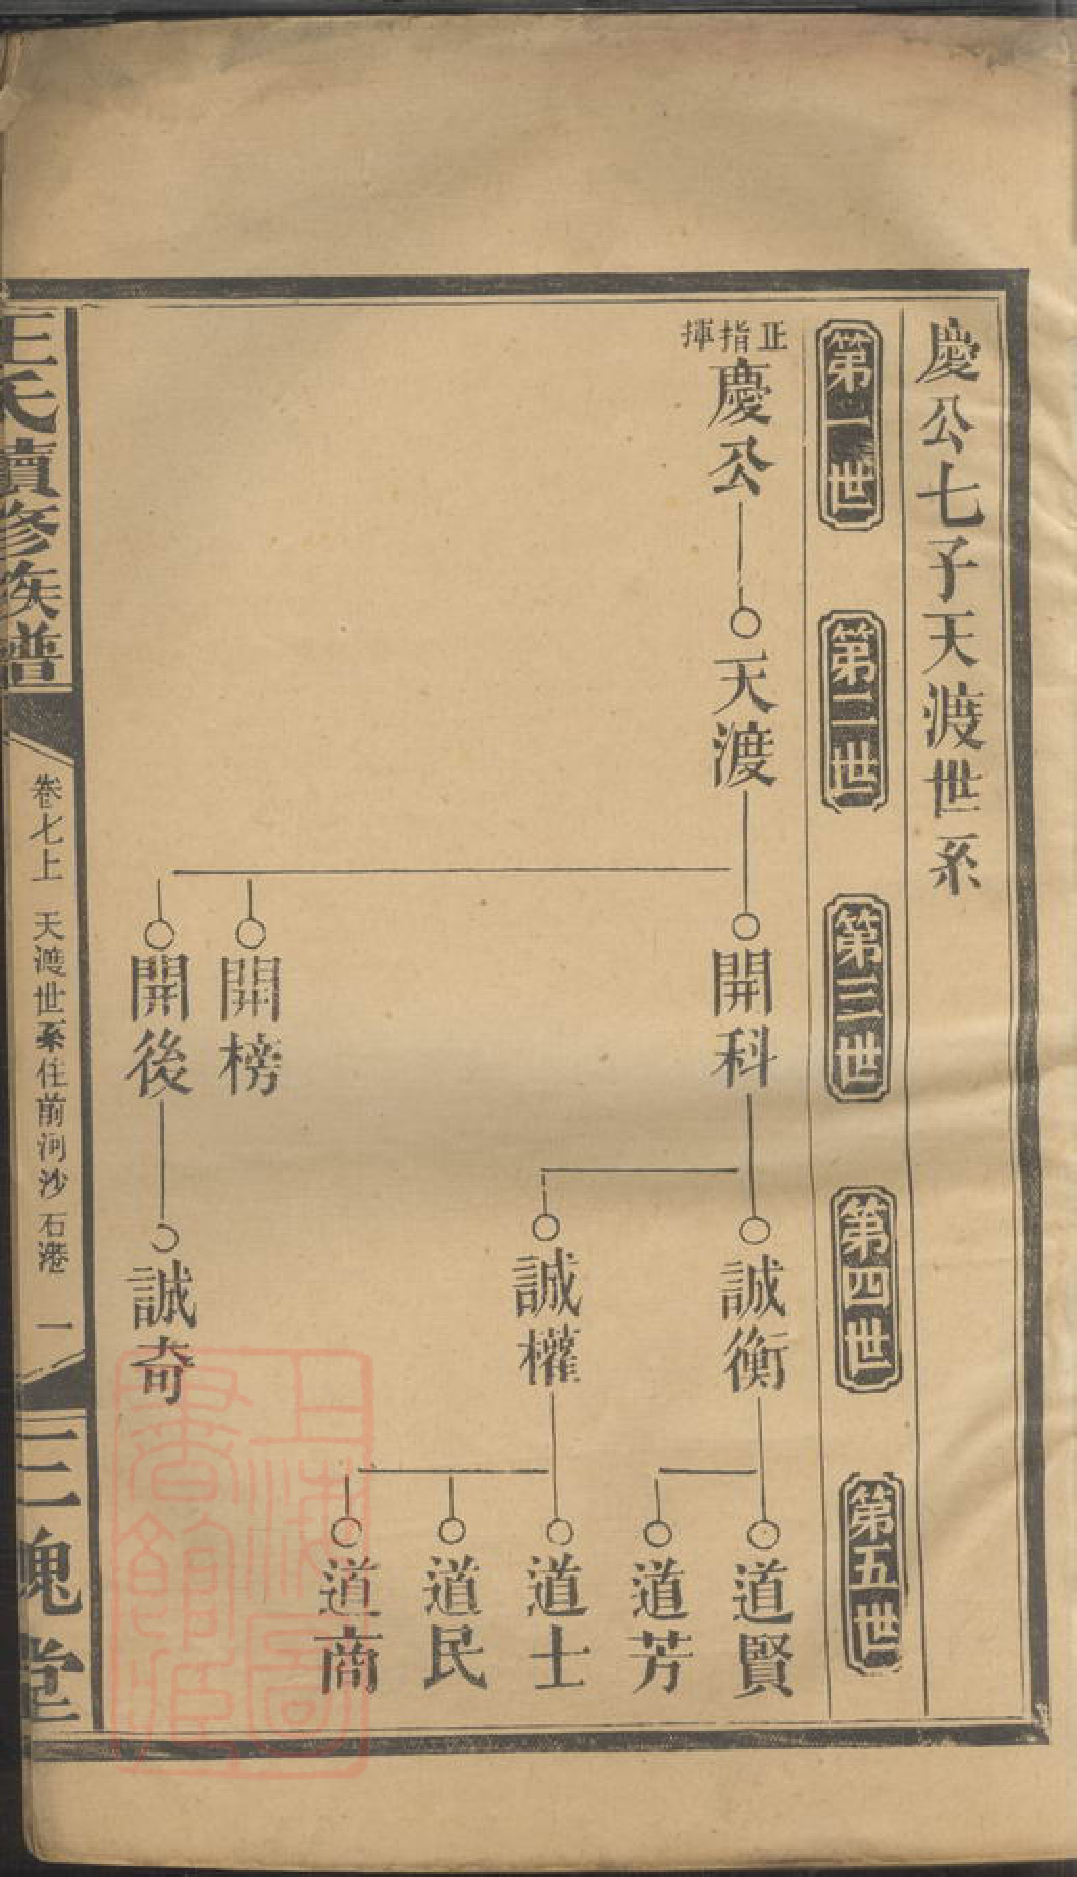 慶公七子天渡世系
第一世
第二世
第三世
第四世
第五世
正指揮
慶公
天渡
開科
開榜
開後
誠衡
誠權
誠奇
道賢
道芳
道士
道民
道商
王氏續修族譜
卷七上 天渡世系住前河沙石港 一
三槐堂
上海圖
書館藏